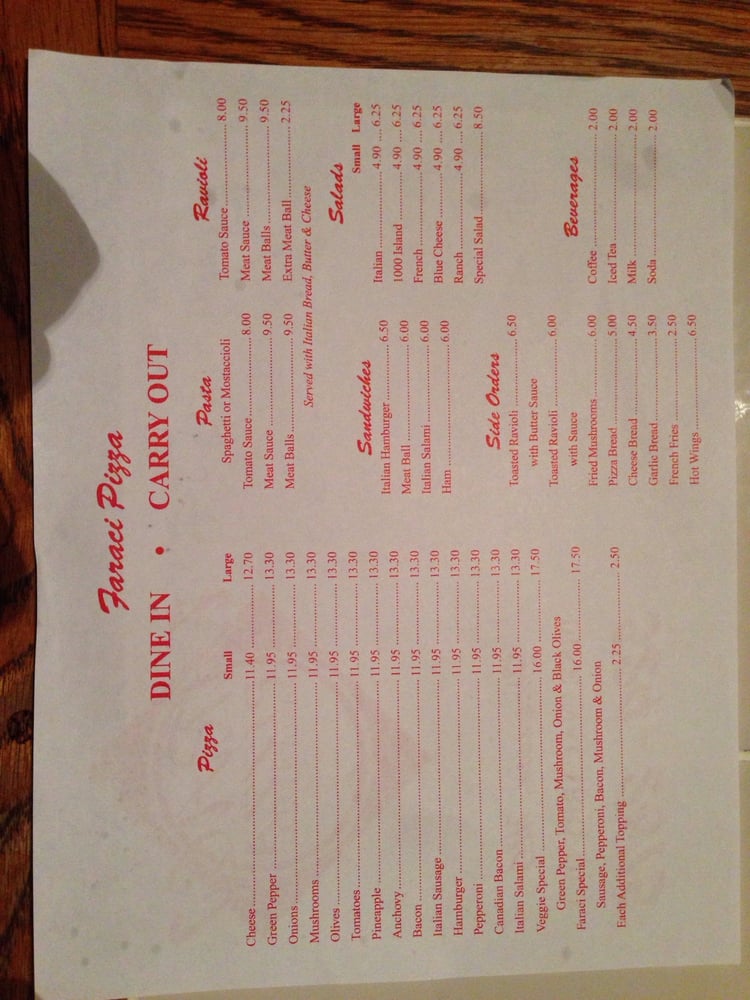 Faraci Pizza
DINE IN • CARRY OUT
Pizza
Small Large
Cheese 11.40 12.70
Green Pepper 11.95 13.30
Onions 11.95 13.30
Mushrooms 11.95 13.30
Olives 11.95 13.30
Tomatoes 11.95 13.30
Pineapple 11.95 13.30
Anchovy 11.95 13.30
Bacon 11.95 13.30
Italian Sausage 11.95 13.30
Hamburger 11.95 13.30
Pepperoni 11.95 13.30
Canadian Bacon 11.95 13.30
Italian Salami 11.95 13.30
Veggie Special 16.00 17.50
Green Pepper, Tomato, Mushroom, Onion & Black Olives
Faraci Special 16.00 17.50
Sausage, Pepperoni, Bacon, Mushroom & Onion
Each Additional Topping 2.25 2.50
Pasta
Spaghetti or Mostaccioli
Tomato Sauce 8.00
Meat Sauce 9.50
Meat Balls 9.50
Ravioli
Tomato Sauce 8.00
Meat Sauce 9.50
Meat Balls 9.50
Extra Meat Ball 2.25
Served with Italian Bread, Butter & Cheese
Sandwiches
Italian Hamburger 6.50
Meat Ball 6.00
Italian Salami 6.00
Ham 6.00
Salads
Small Large
Italian 4.90 6.25
1000 Island 4.90 6.25
French 4.90 6.25
Blue Cheese 4.90 6.25
Ranch 4.90 6.25
Special Salad 8.50
Side Orders
Toasted Ravioli 6.50
with Butter Sauce
Toasted Ravioli 6.00
with Sauce
Fried Mushrooms 6.00
Pizza Bread 5.00
Cheese Bread 4.50
Garlic Bread 3.50
French Fries 2.50
Hot Wings 6.50
Beverages
Coffee 2.00
Iced Tea 2.00
Milk 2.00
Soda 2.00